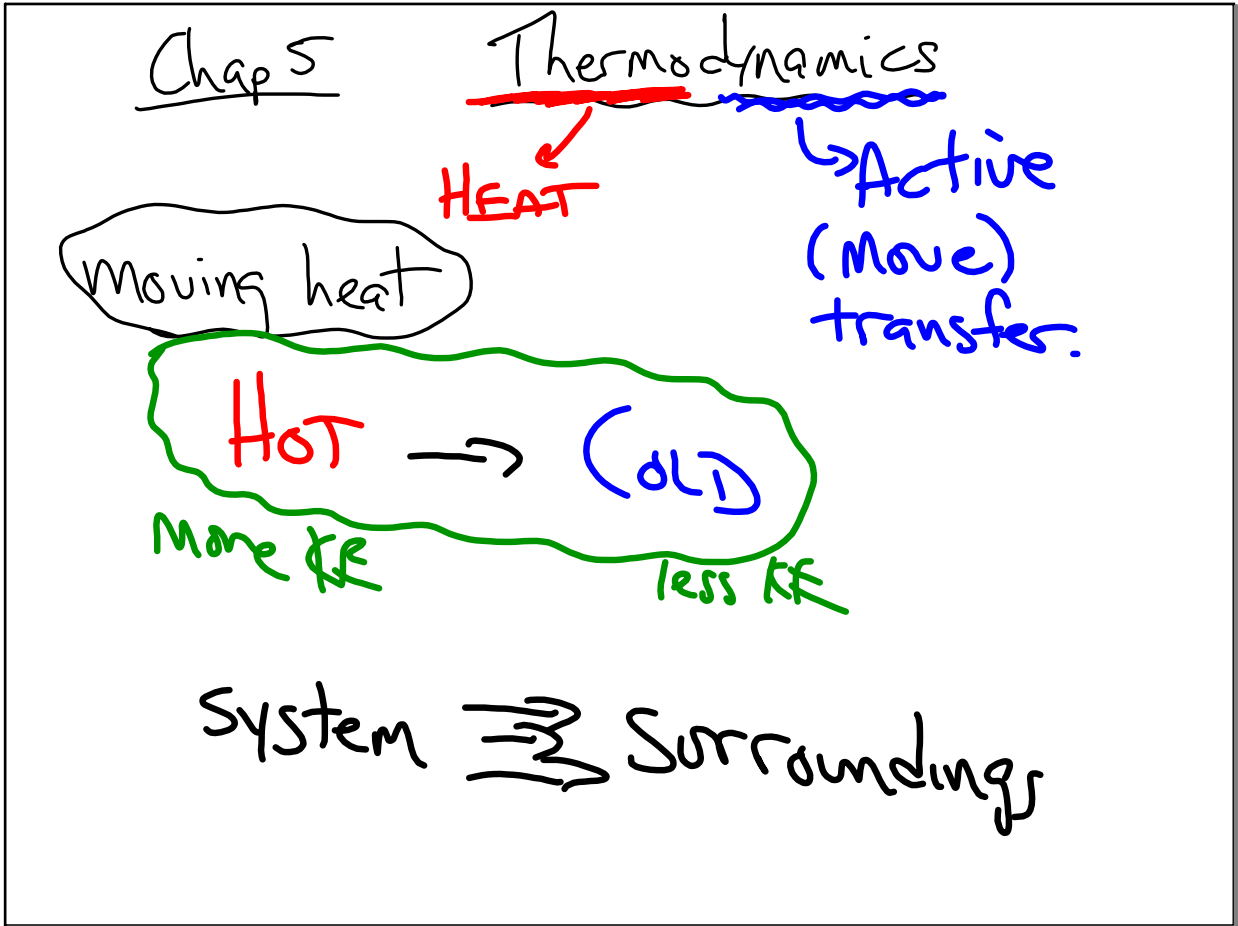 Chap 5 Thermodynamics
HEAT
Active
(move)
transfer.
moving heat
HOT → COLD
More KE
less KE
System Surroundings